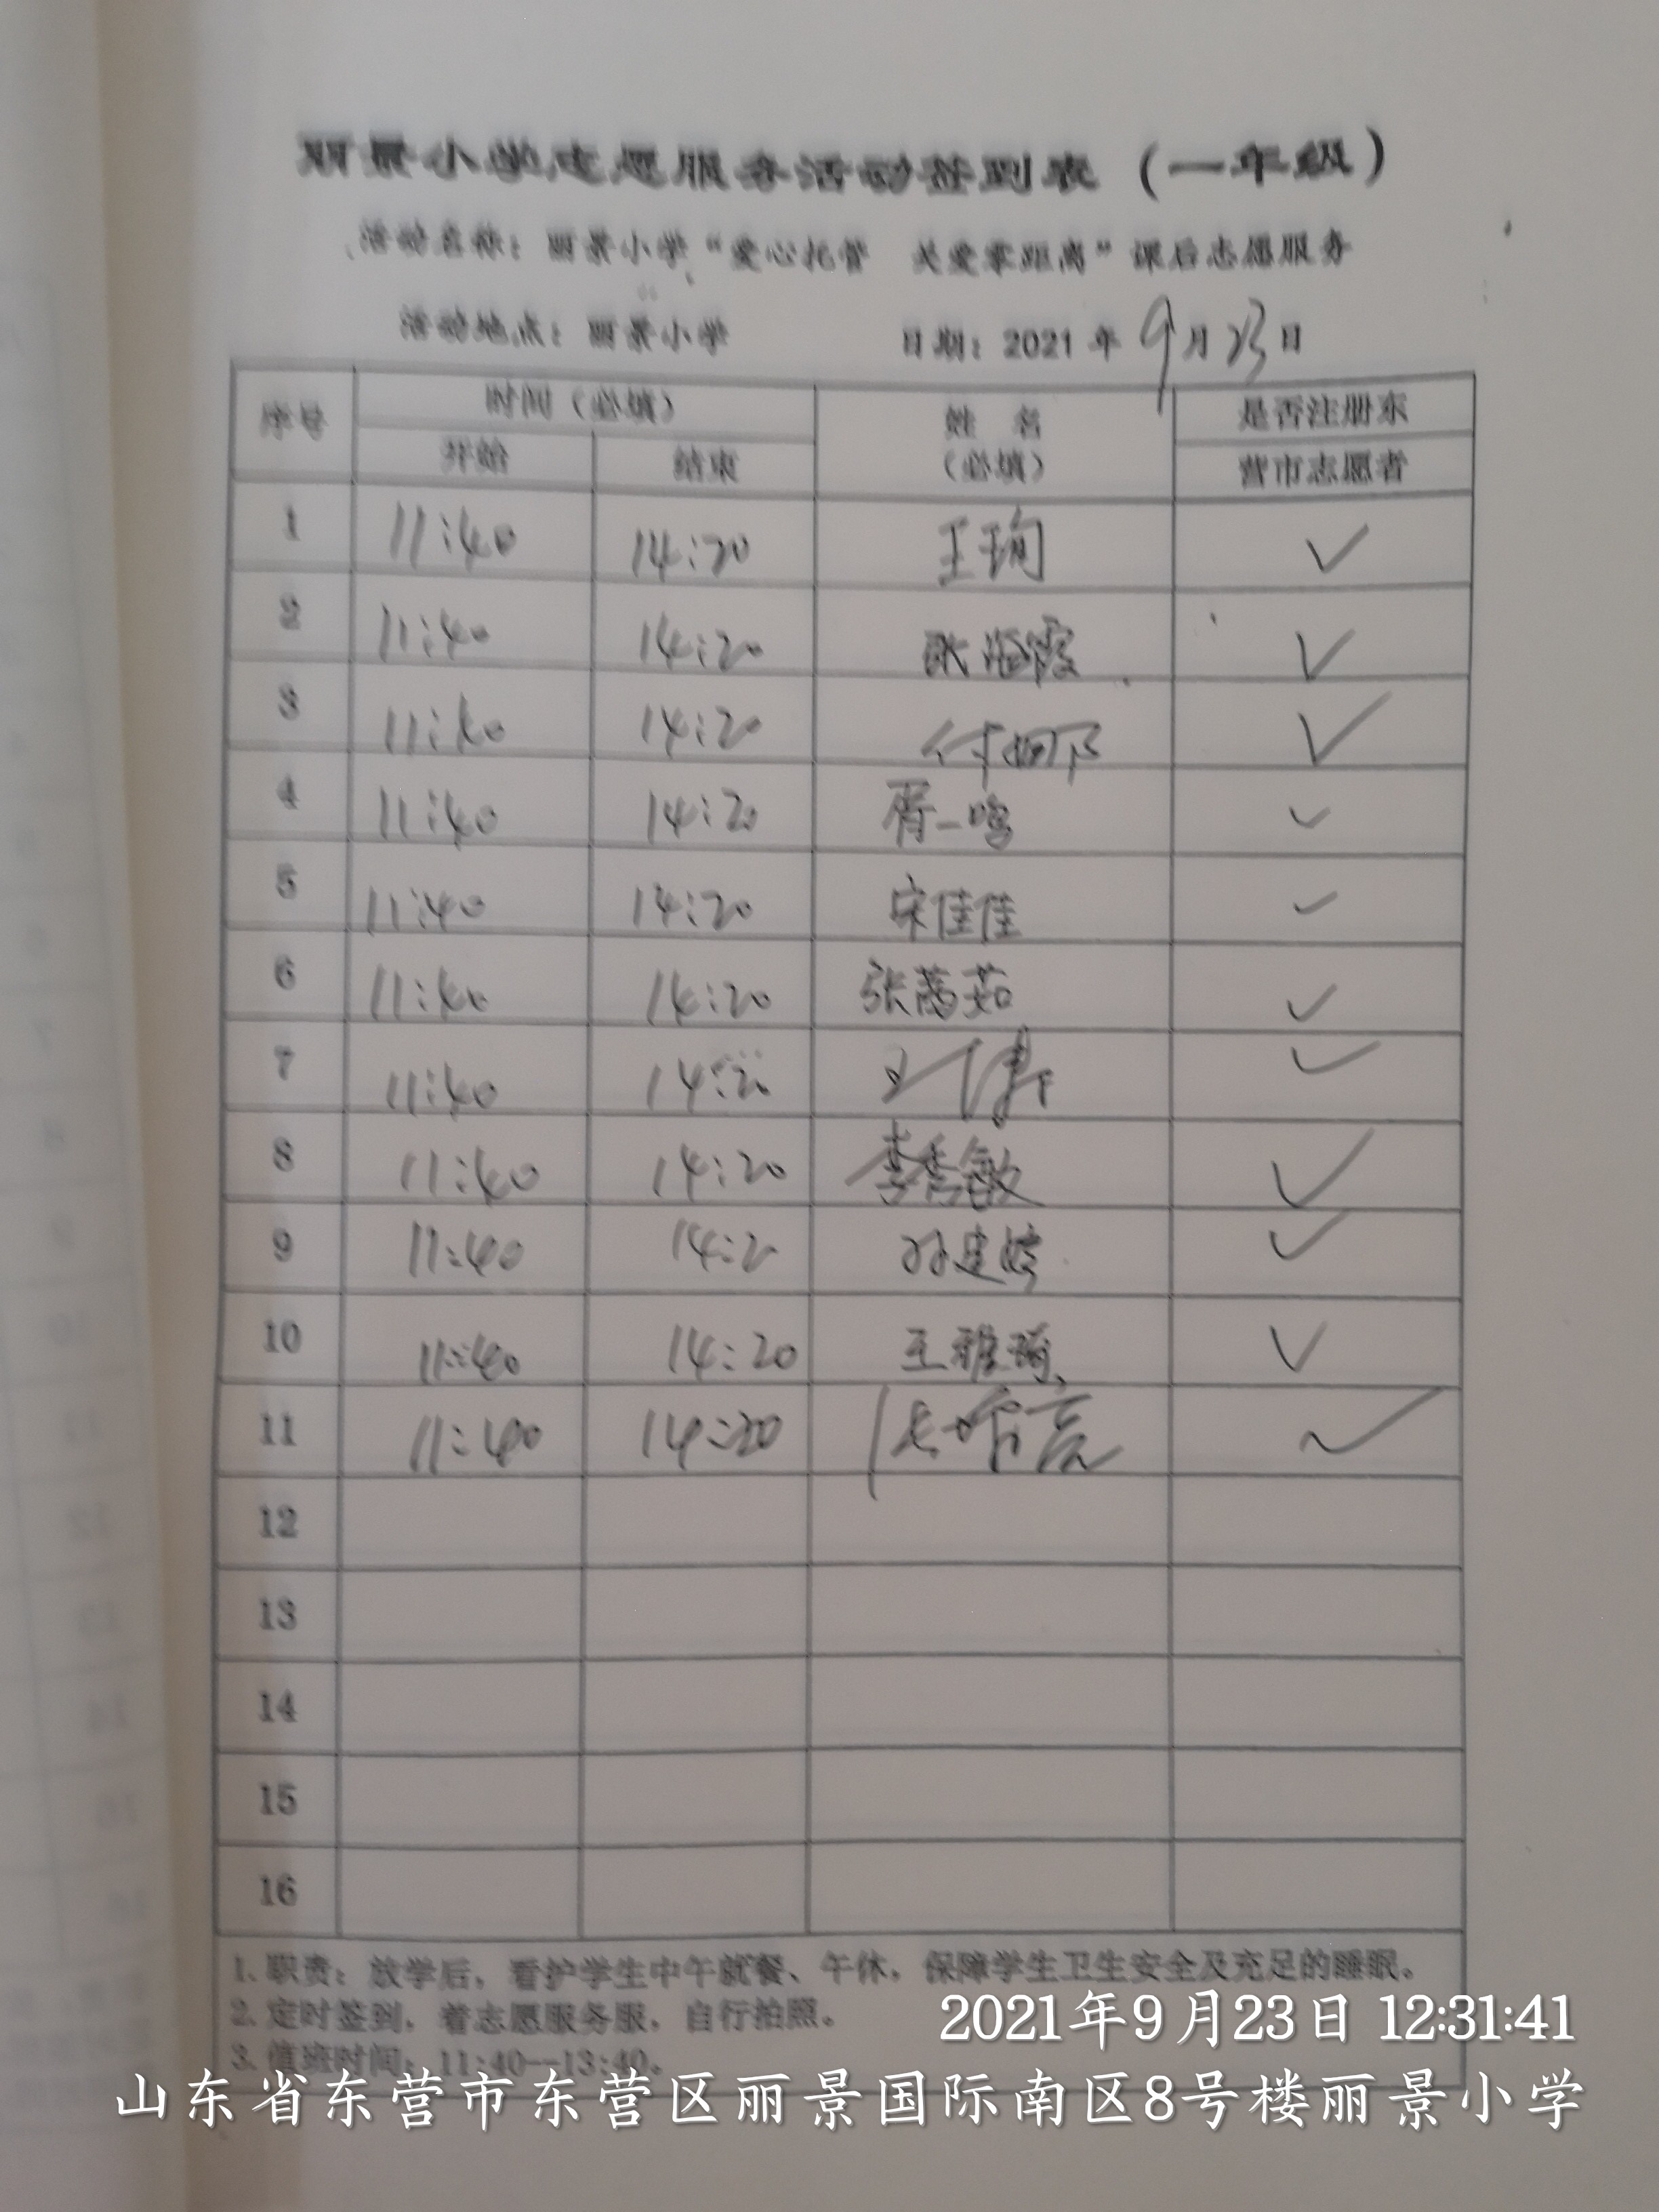 丽景小学志愿服务活动签到表（一年级）
活动名称：丽景小学“爱心托管 关爱零距离”课后志愿服务
活动地点：丽景小学 日期：2021年9月23日
序号 时间（必填） 姓 名 是否注册东
开始 结束 （必填） 营市志愿者
1 11:40 14:20 王珣 ✓
2 11:40 14:20 张海霞 ✓
3 11:40 14:20 付 ✓
4 11:40 14:20 胥一鸣 ✓
5 11:40 14:20 宋佳佳 ✓
6 11:40 14:20 张茹 ✓
7 11:40 14:20 王 ✓
8 11:40 14:20 李秀敏 ✓
9 11:40 14:2 孙建婷 ✓
10 11:40 14:20 王雅琦 ✓
11 11:40 14:20 ✓
12
13
14
15
16
1. 职责：放学后，看护学生中午就餐、午休，保障学生卫生安全及充足的睡眠。
2. 定时签到，着志愿服务服，自行拍照。
3. 值班时间：11:40—13:40。
2021年9月23日 12:31:41
山东省东营市东营区丽景国际南区8号楼丽景小学